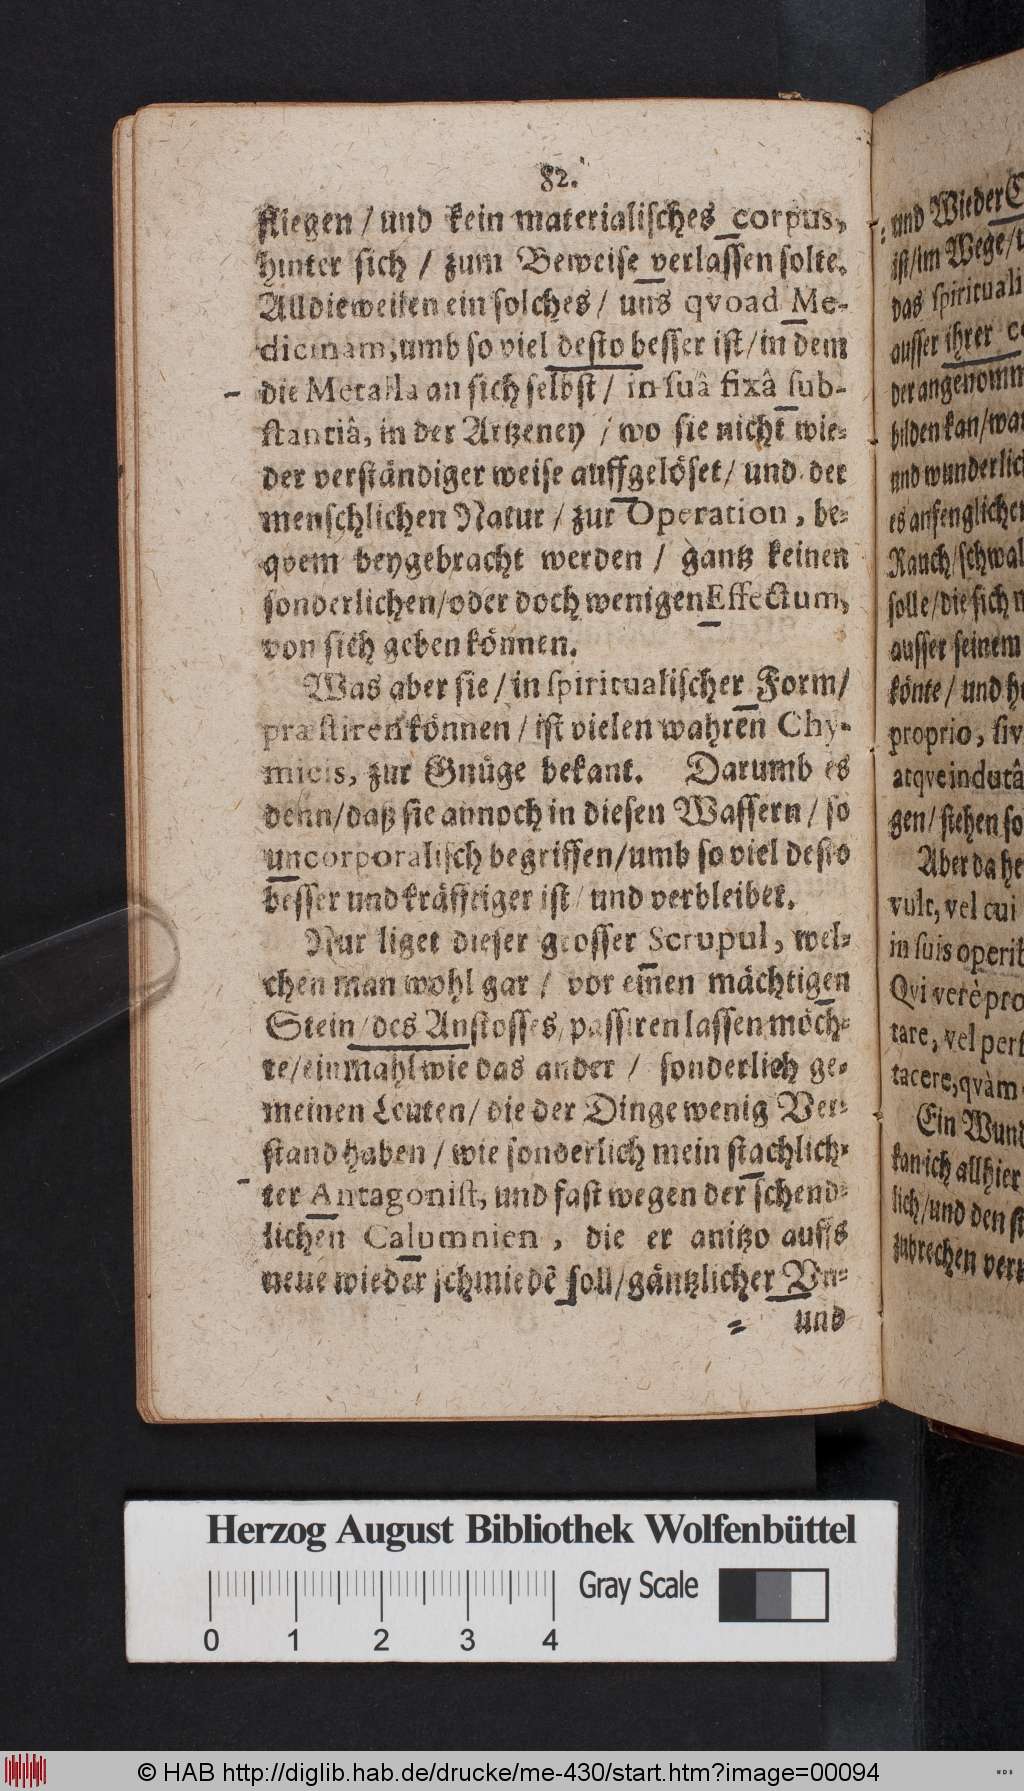 82.
fliegen / und kein materialisches corpus,
hinter sich / zum Beweise verlassen solte.
Alldieweilen ein solches / uns qvoad Me-
dicinam, umb so viel desto besser ist / in dem
die Metalla an sich selbst / in suâ fixâ sub-
stantiâ, in der Artzeney / wo sie nicht wie-
der verständiger weise auffgelöset / und der
menschlichen Natur / zur Operation, be-
qvem beygebracht werden / gantz keinen
sonderlichen / oder doch wenigen Effectum,
von sich geben können.
Was aber sie / in spiritualischer Form /
præstiren können / ist vielen wahren Chy-
micis, zur Gnüge bekant. Darumb es
denn / daß sie annoch in diesen Wassern / so
uncorporalisch begriffen / umb so viel desto
besser und kräfftiger ist / und verbleibet.
Nur liget dieser grosser Scrupul, wel-
chen man wohl gar / vor einen mächtigen
Stein / des Anstosses / passiren lassen möch-
te / einmahl wie das ander / sonderlich ge-
meinen Leuten / die der Dinge wenig Ver-
stand haben / wie sonderlich mein stachlich-
ter Antagonist, und fast wegen der schend-
lichen Calumnien, die er anitzo auffs
neue wieder schmiedẽ soll / gäntzlicher Vn-
und
und Wieder
ist / im Wege /
das spirituali
ausser ihrer
der angenomm
bilden kan / wa
und wunderlich
es anfenglichen
Rauch / schwal
solle / die sich
ausser seinem
könte / und
proprio, siv
atqve indutâ
gen / stehen so
Aber da he
vult, vel cui
in suis operib
Qvi verè pro
tare, vel perf
tacere, qvàm
Ein Wund
kan ich allhier
lich / und den
zubrechen ver
Herzog August Bibliothek Wolfenbüttel
Gray Scale
0 1 2 3 4
© HAB http://diglib.hab.de/drucke/me-430/start.htm?image=00094